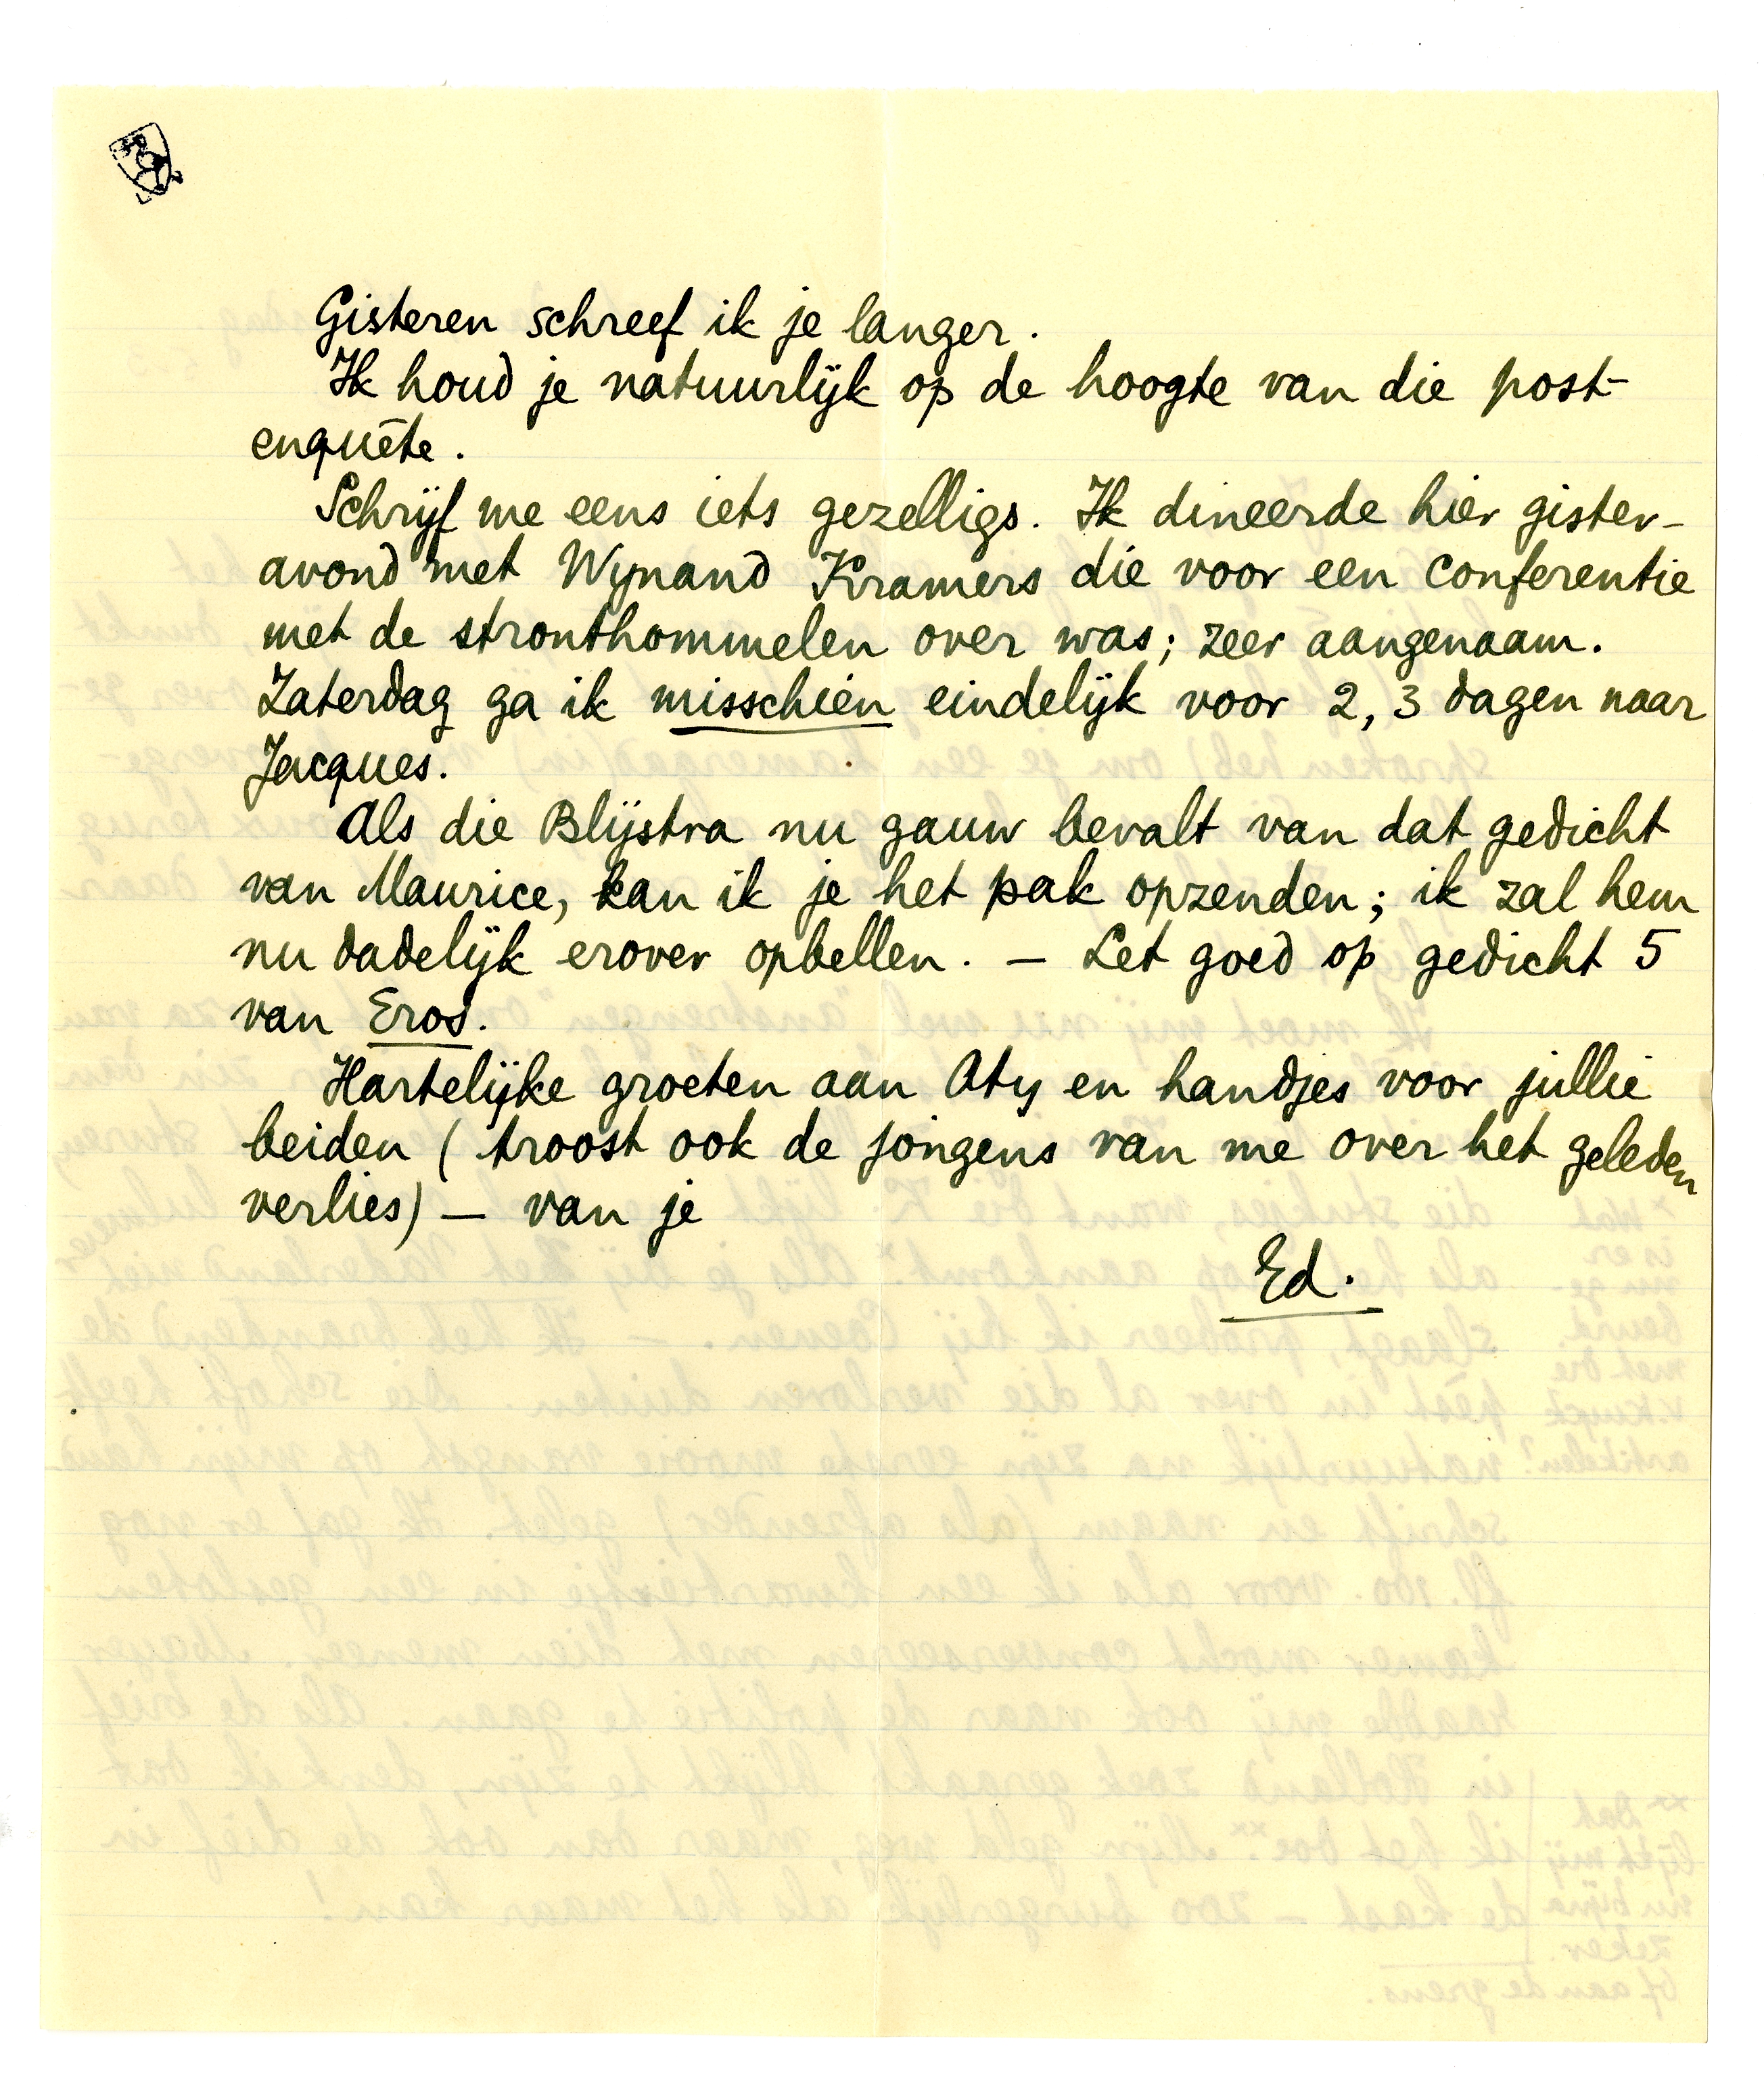 Gisteren schreef ik je langer.
Ik houd je natuurlijk op de hoogte van die post-
enquête.
Schrijf me eens iets gezelligs. Ik dineerde hier gister-
avond met Wynand Kramers die voor een conferentie
met de stronthommelen over was; zeer aangenaam.
Zaterdag ga ik misschien eindelijk voor 2, 3 dagen naar
Jacques.
Als die Blijstra nu gauw bevalt van dat gedicht
van Maurice, kan ik je het pak opzenden; ik zal hem
nu dadelijk erover opbellen. — Let goed op gedicht 5
van Eros.
Hartelijke groeten aan Aty en handjes voor jullie
beiden (troost ook de jongens van me over het geleden
verlies) — van je
Ed.